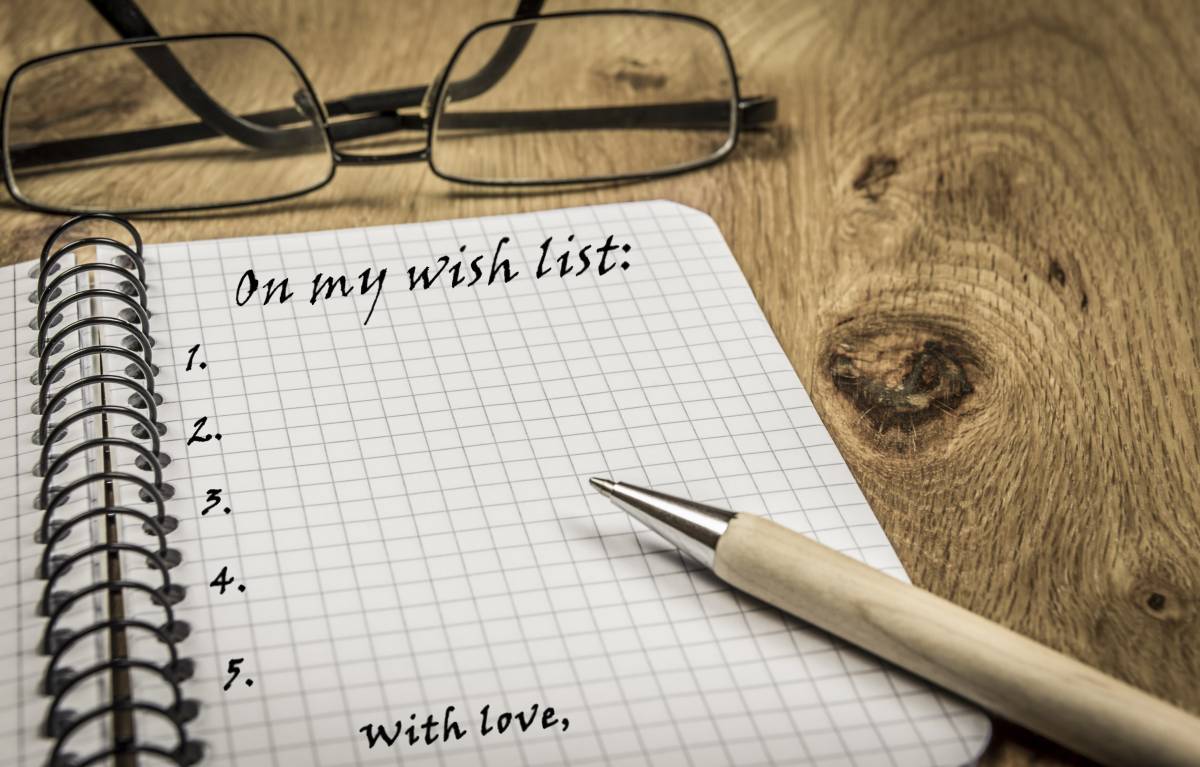 On my wish list:
1.
2.
3.
4.
5.
With love,